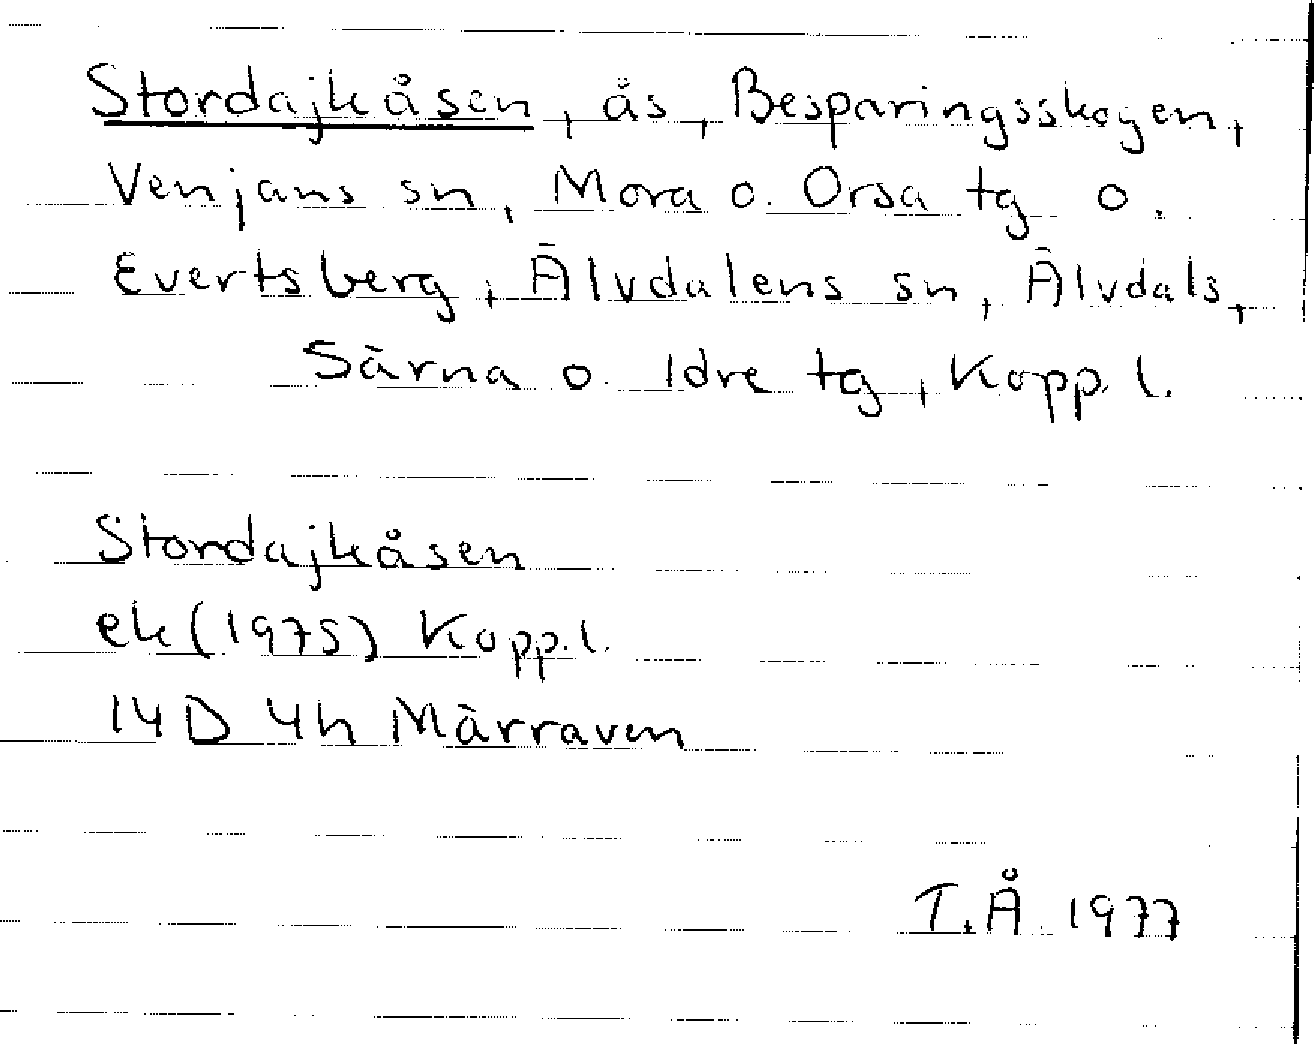 Stordajkåsen, ås, Besparingsskogen,
Venjans sn, Mora o. Orsa tg o.
Evertsberg, Älvdalens sn, Älvdals,
Särna o. Idre tg, Kopp. l.
Stordajkåsen
ek (1975) Kopp. l.
14 D 4h Märraven
T.Å. 1977